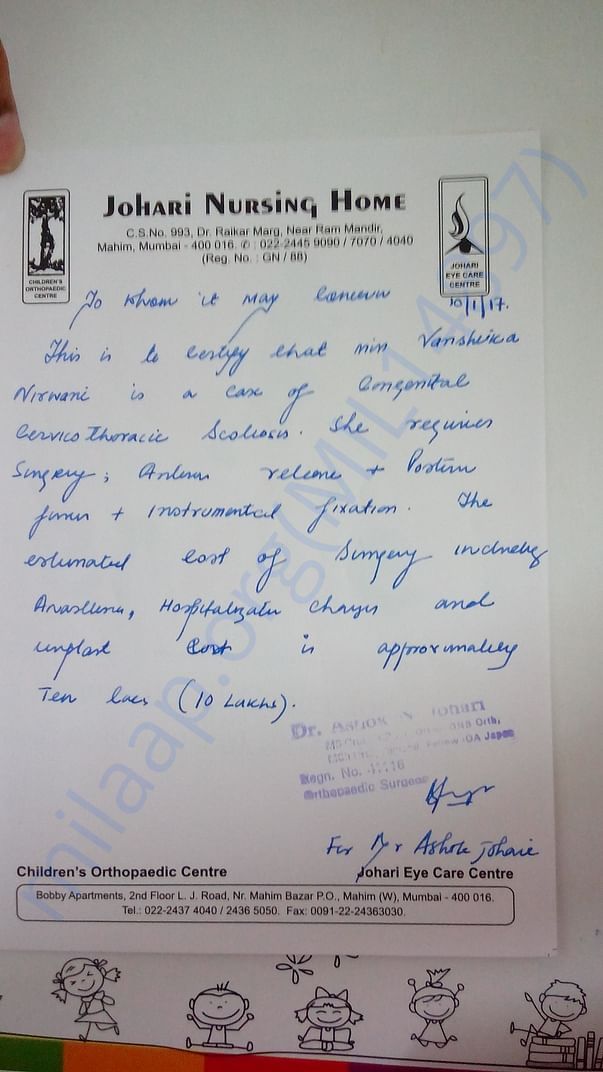 JOHARI NURSING HOME
C.S.No. 993, Dr. Raikar Marg, Near Ram Mandir,
Mahim, Mumbai - 400 016. ✆ : 022-2445 9090 / 7070 / 4040
(Reg. No. : GN / 88)
CHILDREN'S
ORTHOPAEDIC
CENTRE
JOHARI
EYE CARE
CENTRE
To whom it may concern
10/1/17.
This is to certify that miss Vanshika
Nirwani is a case of Congenital
Cervico thoracic Scoliosis. She requires
Surgery; Anterior release + Posterior
fusion + Instrumented fixation. The
estimated cost of Surgery including
Anasthesia, Hospitalization charges and
implant cost is approximately
Ten lacs (10 Lakhs).
Dr. Ashok Johari
Regn. No.
Orthopaedic Surgeon
For Dr Ashok Johari
Children's Orthopaedic Centre
Johari Eye Care Centre
Bobby Apartments, 2nd Floor L. J. Road, Nr. Mahim Bazar P.O., Mahim (W), Mumbai - 400 016.
Tel.: 022-2437 4040 / 2436 5050. Fax: 0091-22-24363030.
milaap.org(MIL14397)